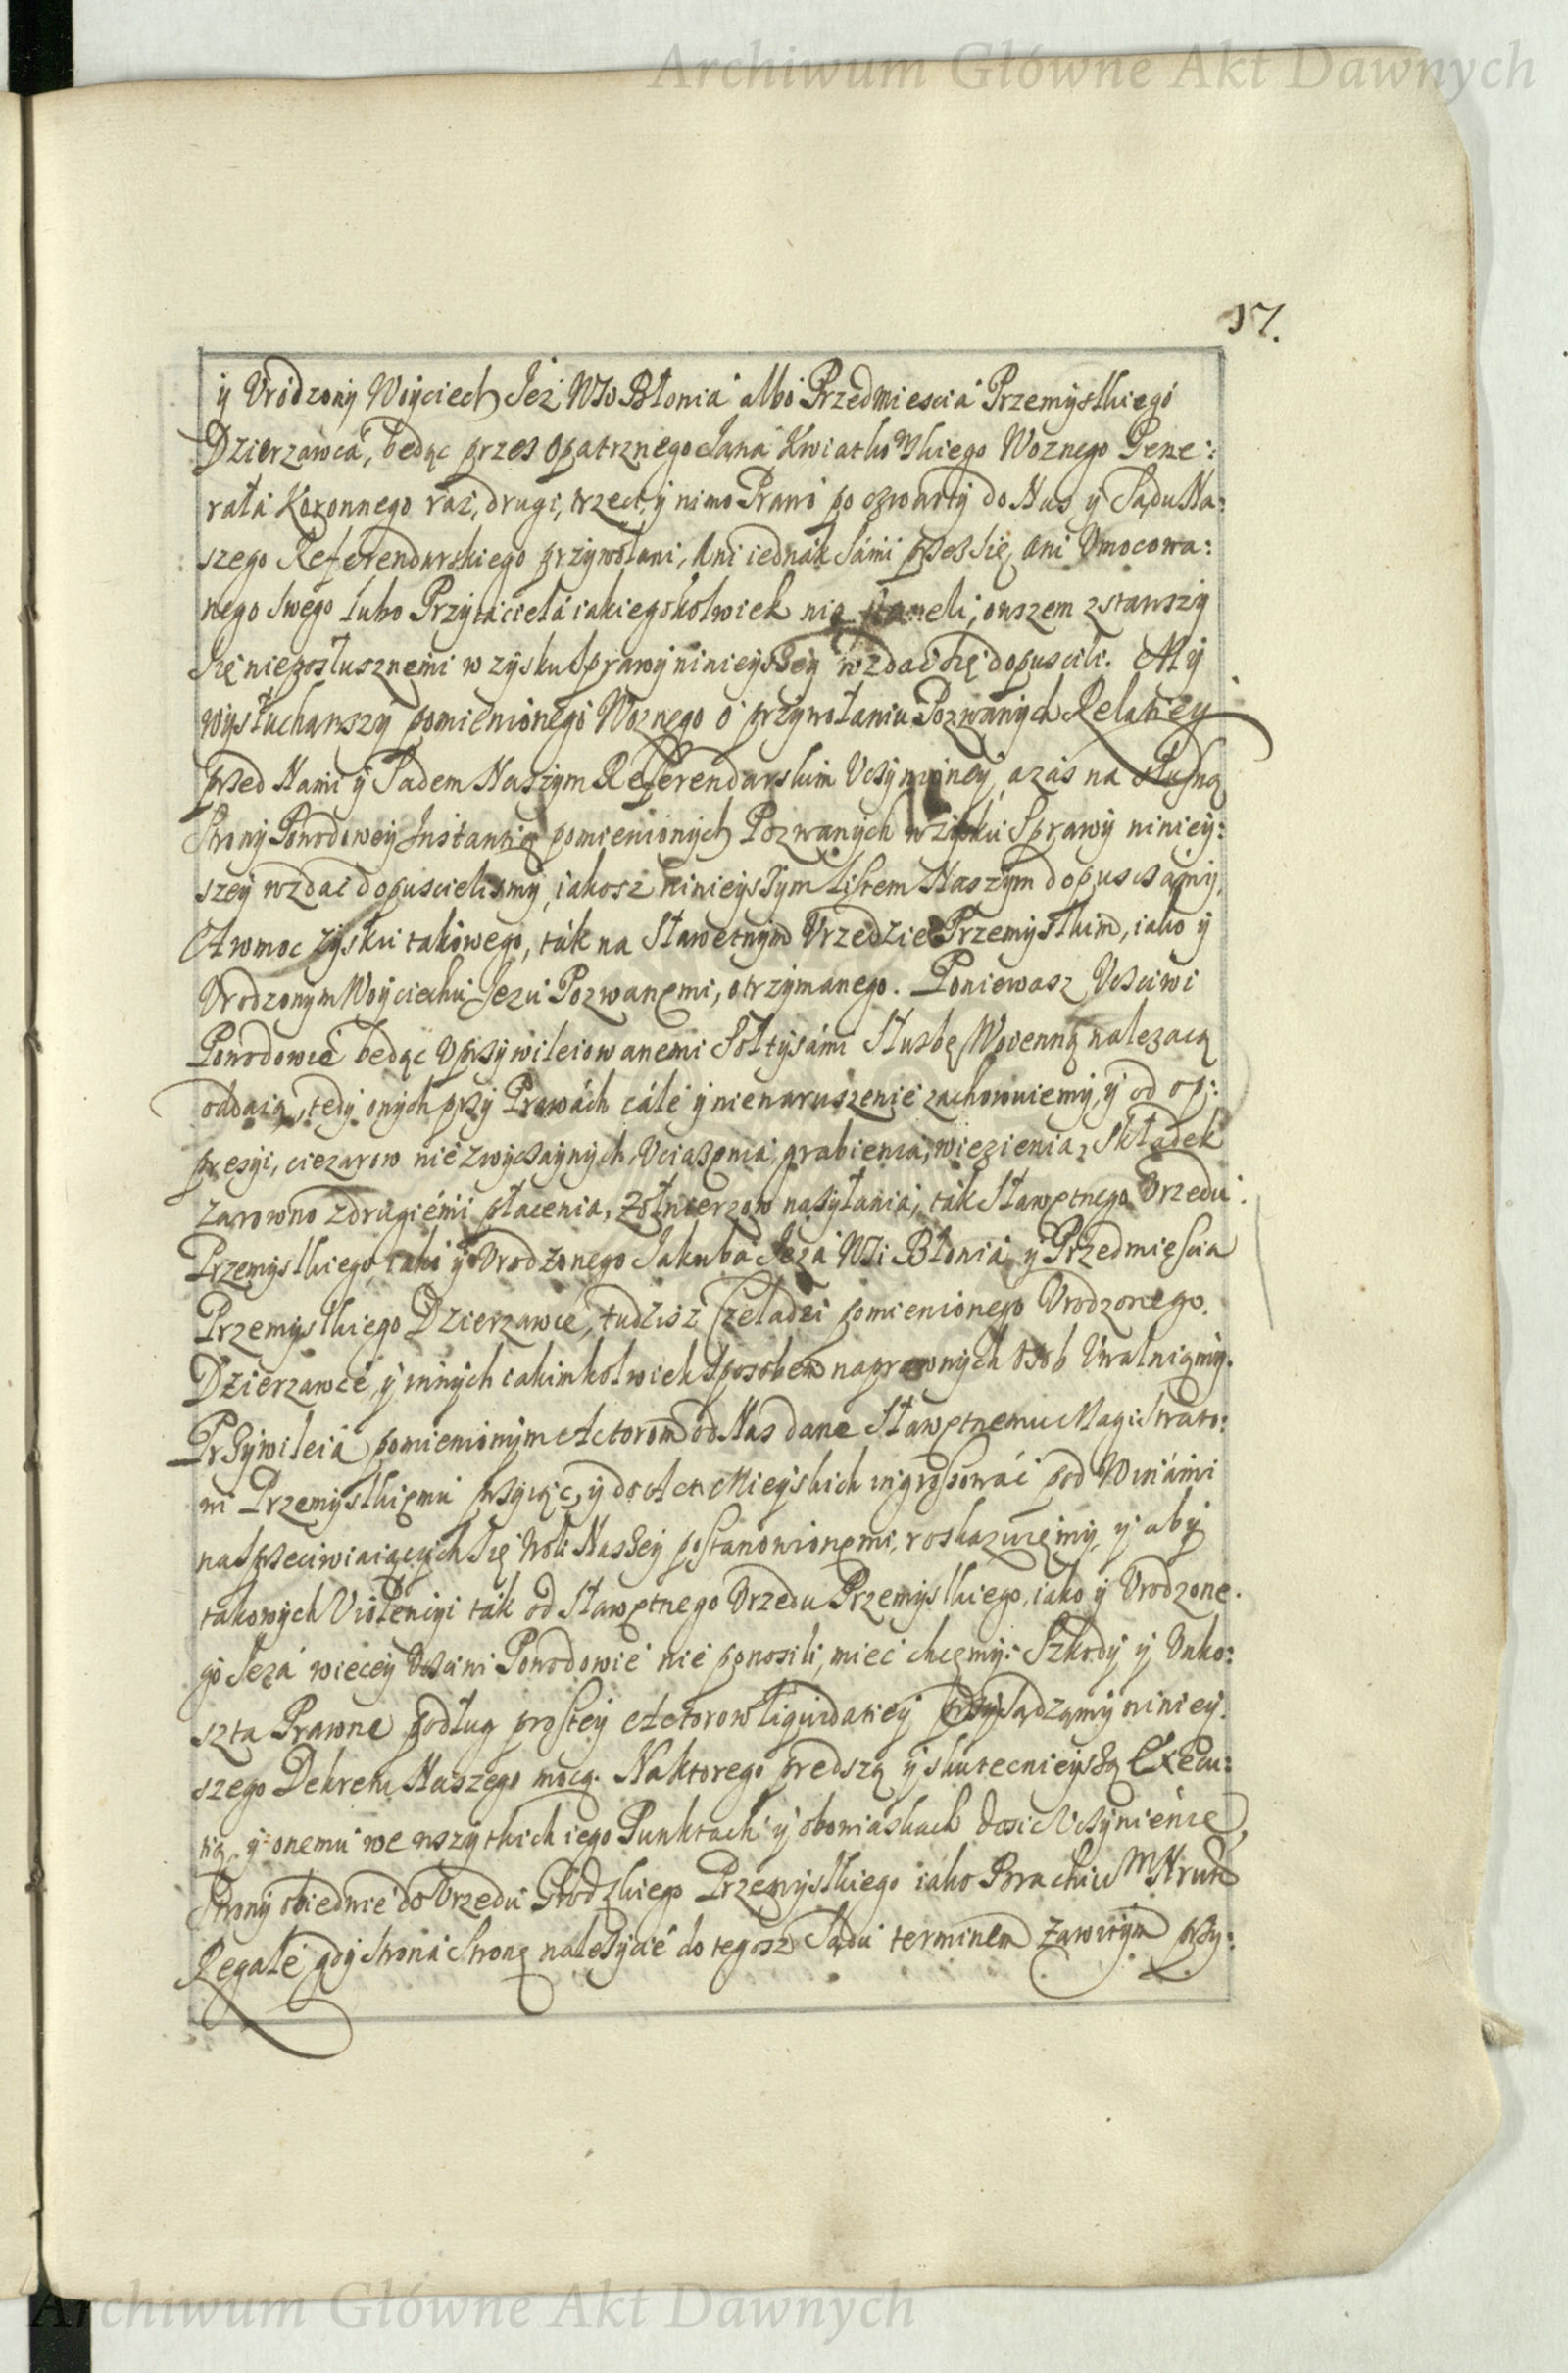 Archiwum Główne Akt Dawnych
17.
ÿ Vrodzonÿ Woÿciech Jeż Wsi Błonia albo Przedmiescia Przemÿskiego
Dzierzawca, bedąc przes opatrznego Jana Kwiatkowskiego Woznego Gene:
rała Koronnego raz, drugi, trzeci, ÿ nimo Prawo po czwartÿ do Nas ÿ Sądu Na:
szego Referendarskiego przÿwołani, Ani iednak sami przes się, ani Vmocowa:
nego swego lubo Przÿiaciela iakiegokolwiek nie staneli, owszem zstawszÿ
się niepostusznemi w zÿsku sprawÿ ninieÿszeÿ wzdac się dopuscili. Mÿ
wÿsłuchawszÿ pomienionego Woznego o przÿwołaniu Pozwanÿch Relatieÿ
przed Nami ÿ Sadem Naszÿm Referendarskim Vczÿnioneÿ, azas na słuszną
Stronÿ Powodoweÿ Instantią pomienionÿch Pozwanÿch w zÿsku Sprawÿ niniеÿ:
szeÿ wzdac dopuscielismÿ, iakosz ninieÿszÿm listem Naszÿm dopusczamÿ,
A w moc zÿsku takowego, tak na Sławetnÿm Vrzedzie Przemÿskim, iako ÿ
Vrodzonÿm Woÿciechu Jezu Pozwanemi, otrzÿmanego. Poniewasz Vczciwi
Powodowie bedąc Vprzÿwileiowanemi Sołtÿsami Słuzbę Woienną nalezacą
oddaią, tedÿ onÿch przÿ Prawach cale ÿ nienaruszenie zachowuiemÿ, ÿ od op:
presÿi, ciezarow niezwÿczaÿnÿch, Vciązenia, grabienia, wiezienia, Składek
zarowno zdrugiemi płacenia, Zołnierzow nasÿłania, tak Sławetnego Vrzedu
Przemÿskiego iako ÿ Vrodzonego Jakuba Jeza Wsi Błonia, ÿ Przedmiescia
Przemÿskiego Dzierzawce, tudzisz Czeladzi pomienionego Vrodzonego
Dzierzawce, ÿ innÿch iakimkolwiek sposobem naprawnÿch osob Vwalniąmÿ.
Przÿwileia pomienionÿm Actorom od Nas dane Sławetnemu Magistrato:
wi Przemÿskiemu przÿiąc, ÿ do Act Mieÿskich ingrossowac pod Winami
na sprzeciwiaiącÿch się Woli Naszeÿ postanowionemi, roskazuięmÿ, ÿ abÿ
takowÿch Violencÿi tak od Sławetnego Vrzedu Przemÿskiego, iako ÿ Vrodzone:
go Jeza wieceÿ Vczciwi Powodowie nie ponosili, miec chcemÿ: Szkodÿ ÿ Vnko:
szta Prawne podług prosteÿ Actorow liquidatieÿ przÿsądzamÿ niniеÿ:
szego Dekretu Naszego mocą. Naktorego predszą ÿ skutecznieÿszą Execu:
tią, ÿ onemu we wszÿtkich iego Punktach ÿ obowiaskach dosic Vczÿnienie,
Stronÿ obiedwie do Vrzedu Grodzkiego Przemÿskiego iako Brachium
Regale gdÿ strona Stronę nalezÿcie do tegosz Sądu terminem zawitÿm przÿ:
Archiwum Główne Akt Dawnych